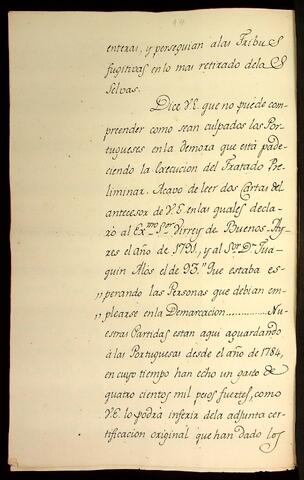 enteras, y perseguian a las Tribus
fugitivas en lo mas retirado de las
Selvas.
Dice V.E. que no puede com-
preender como sean culpados los Por-
tugueses en la Demora que está pade-
ciendo la Execucion del Tratado Pre-
liminar. Acavo de leer dos Cartas del
antecesor de V.E. en las quales decla-
ró al Ex.mo S.or Virrey de Buenos-Ay-
res el año de 1791, y al S.or D.n Jua-
quin Alós el de 93." Que estaba es-
" perando las Personas que debian em-
" plearse en la Demarcacion............Nu-
estras Partidas estan aqui aguardando
á las Portuguesas desde el año de 1784,
en cuyo tiempo han echo un gasto de
quatro cientos mil pesos fuertes, como
V.E. lo podrá inferir de la adjunta cer-
tificacion original que han dado los